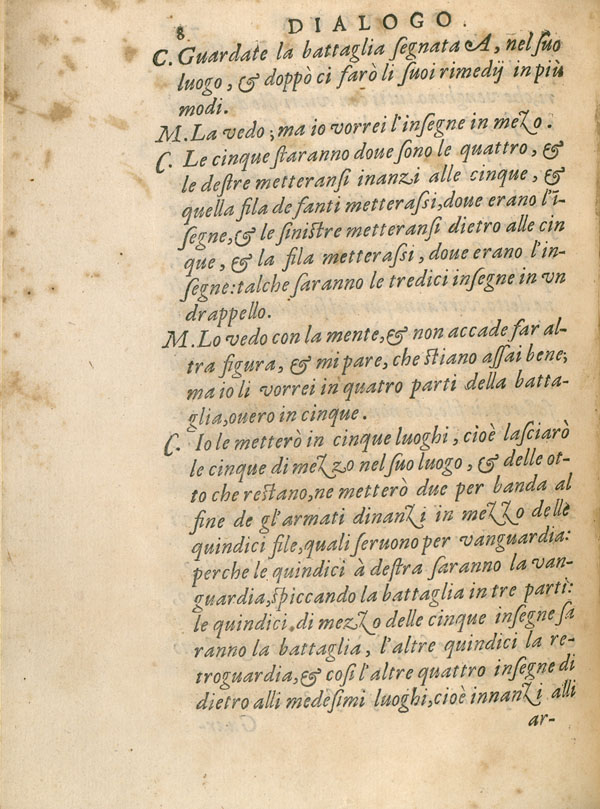 8 DIALOGO.
C. Guardate la battaglia segnata A, nel suo
luogo, & doppò ci farò li suoi rimedij in più
modi.
M. La vedo; ma io vorrei l'insegne in mezo.
C. Le cinque staranno doue sono le quattro, &
le destre metteransi inanzi alle cinque, &
quella fila de fanti metterassi, doue erano l'i-
segne, & le sinistre metteransi dietro alle cin
que, & la fila metterassi, doue erano l'in-
segne: talche saranno le tredici insegne in vn
drappello.
M. Lo vedo con la mente, & non accade far al-
tra figura, & mi pare, che stiano assai bene;
ma io li vorrei in quatro parti della batta-
glia, ouero in cinque.
C. Io le metterò in cinque luoghi, cioè lasciarò
le cinque di mezzo nel suo luogo, & delle ot-
to che restano, ne metterò due per banda al
fine de gl'armati dinanzi in mezzo delle
quindici file, quali seruono per vanguardia:
perche le quindici à destra saranno la van-
guardia, spiccando la battaglia in tre parti:
le quindici di mezzo delle cinque insegne sa
ranno la battaglia, l'altre quindici la re-
troguardia, & cosi l'altre quattro insegne di
dietro alli medesimi luoghi, cioè innanzi alli
ar-